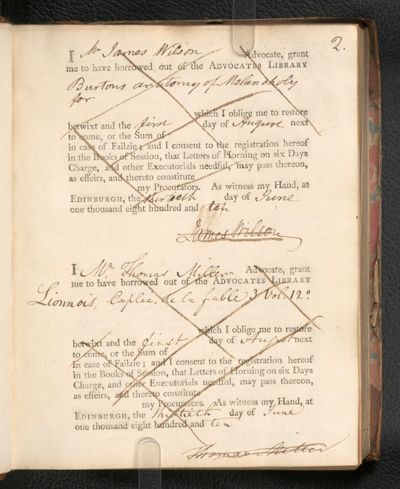 2.
I Mr James Wilson Advocate, grant
me to have borrowed out of the ADVOCATES LIBRARY
Burtons anatomy of Melancholy
for
which I oblige me to restore
betwixt and the first day of August next
to come, or the Sum of
in case of Failzie; and I consent to the registration hereof
in the Books of Session, that Letters of Horning on six Days
Charge, and other Executorials needful, may pass thereon,
as effeirs, and thereto constitute
my Procurators. As witness my Hand, at
EDINBURGH, the day of June
one thousand eight hundred and ten
James Wilson
I Mr. Thomas Miller Advocate, grant
me to have borrowed out of the ADVOCATES LIBRARY
Lionnois, Explic. de la fable 3 Vol. 12o
which I oblige me to restore
betwixt and the first day of August next
to come, or the Sum of
in case of Failzie; and I consent to the registration hereof
in the Books of Session, that Letters of Horning on six Days
Charge, and other Executorials needful, may pass thereon,
as effeirs, and thereto constitute
my Procurators. As witness my Hand, at
EDINBURGH, the thirtieth day of June
one thousand eight hundred and ten
Thomas Miller